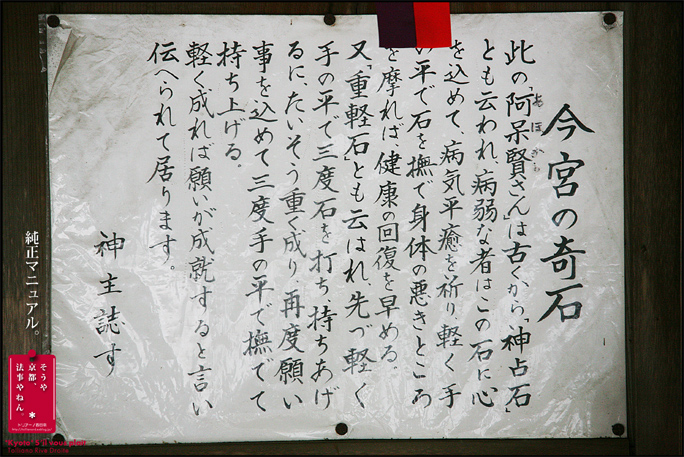 今宮の奇石
此の「阿呆賢さん」は古くから、「神占石」
あほかし
とも云われ、病弱な者はこの石に心
を込めて、病気平癒を祈り、軽く手
の平で石を撫で身体の悪きところ
を摩れば、健康の回復を早める。
又「重軽石」とも云はれ、先づ軽く
手の平で三度石を打ち、持ちあげ
るに、たいそう重く成り、再度願い
事を込めて三度手の平で撫でて
持ち上げる。
軽く成れば願いが成就すると言い
伝へられて居ります。
神主誌す
純正マニュアル。
そうや
京都、
法事やねん。